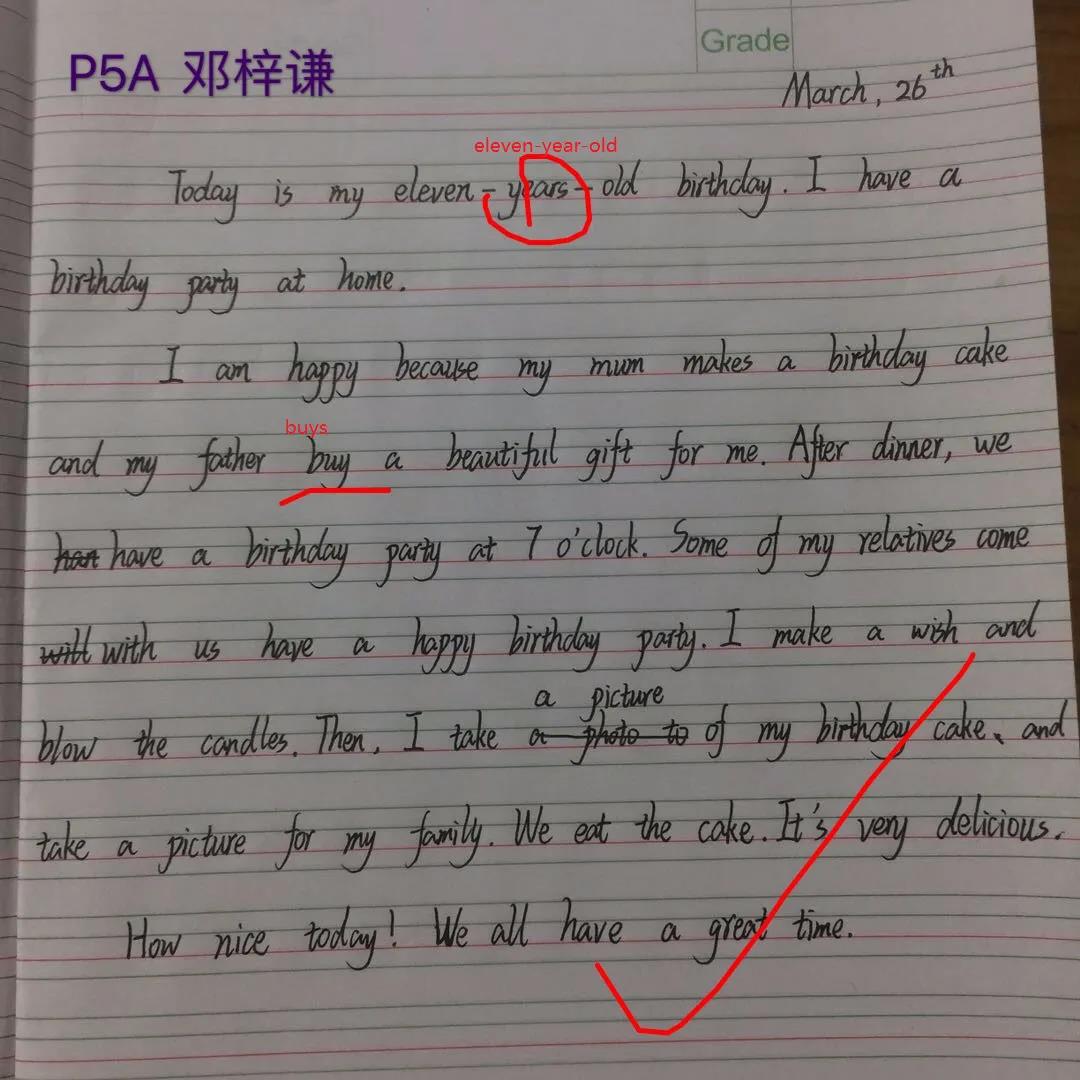 Grade
P5A 邓梓谦
March, 26th
eleven-year-old
Today is my eleven-years-old birthday. I have a
birthday party at home.
I am happy because my mum makes a birthday cake
buys
and my father buy a beautiful gift for me. After dinner, we
have a birthday party at 7 o'clock. Some of my relatives come
with us have a happy birthday party. I make a wish and
a picture
blow the candles. Then, I take a photo to of my birthday cake、and
take a picture for my family. We eat the cake. It's very delicious.
How nice today! We all have a great time.